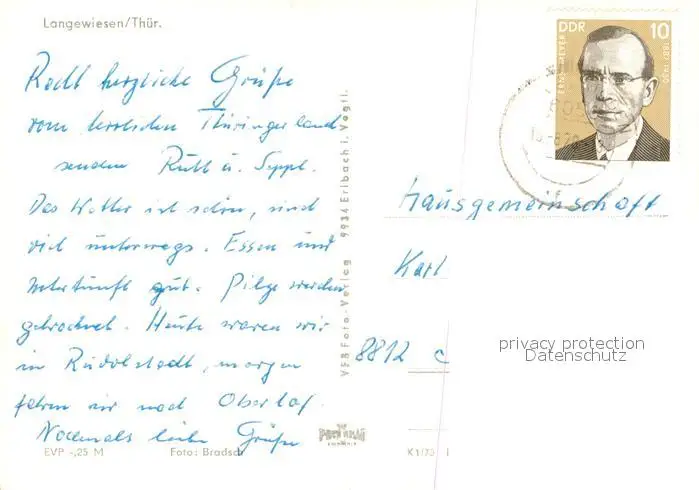 Langewiesen/Thür.
Recht herzliche Grüße
vom herrlichen Thüringerland
senden Ruth u. Seppl.
Das Wetter ist schön, sind
viel unterwegs. Essen und
Unterkunft gut. Pilze werden
getrocknet. Heute waren wir
in Rudolstadt, morgen
fahren wir nach Oberhof.
Nochmals liebe Grüße
EVP -,25 M
Foto: Bradsch
VEB Foto-Verlag 9934 Erlbach i. Vogtl.
K1/70
DDR
10
ERNST MEYER
1887-1930
Hausgemeinschaft
Karl
8812
privacy protection
Datenschutz